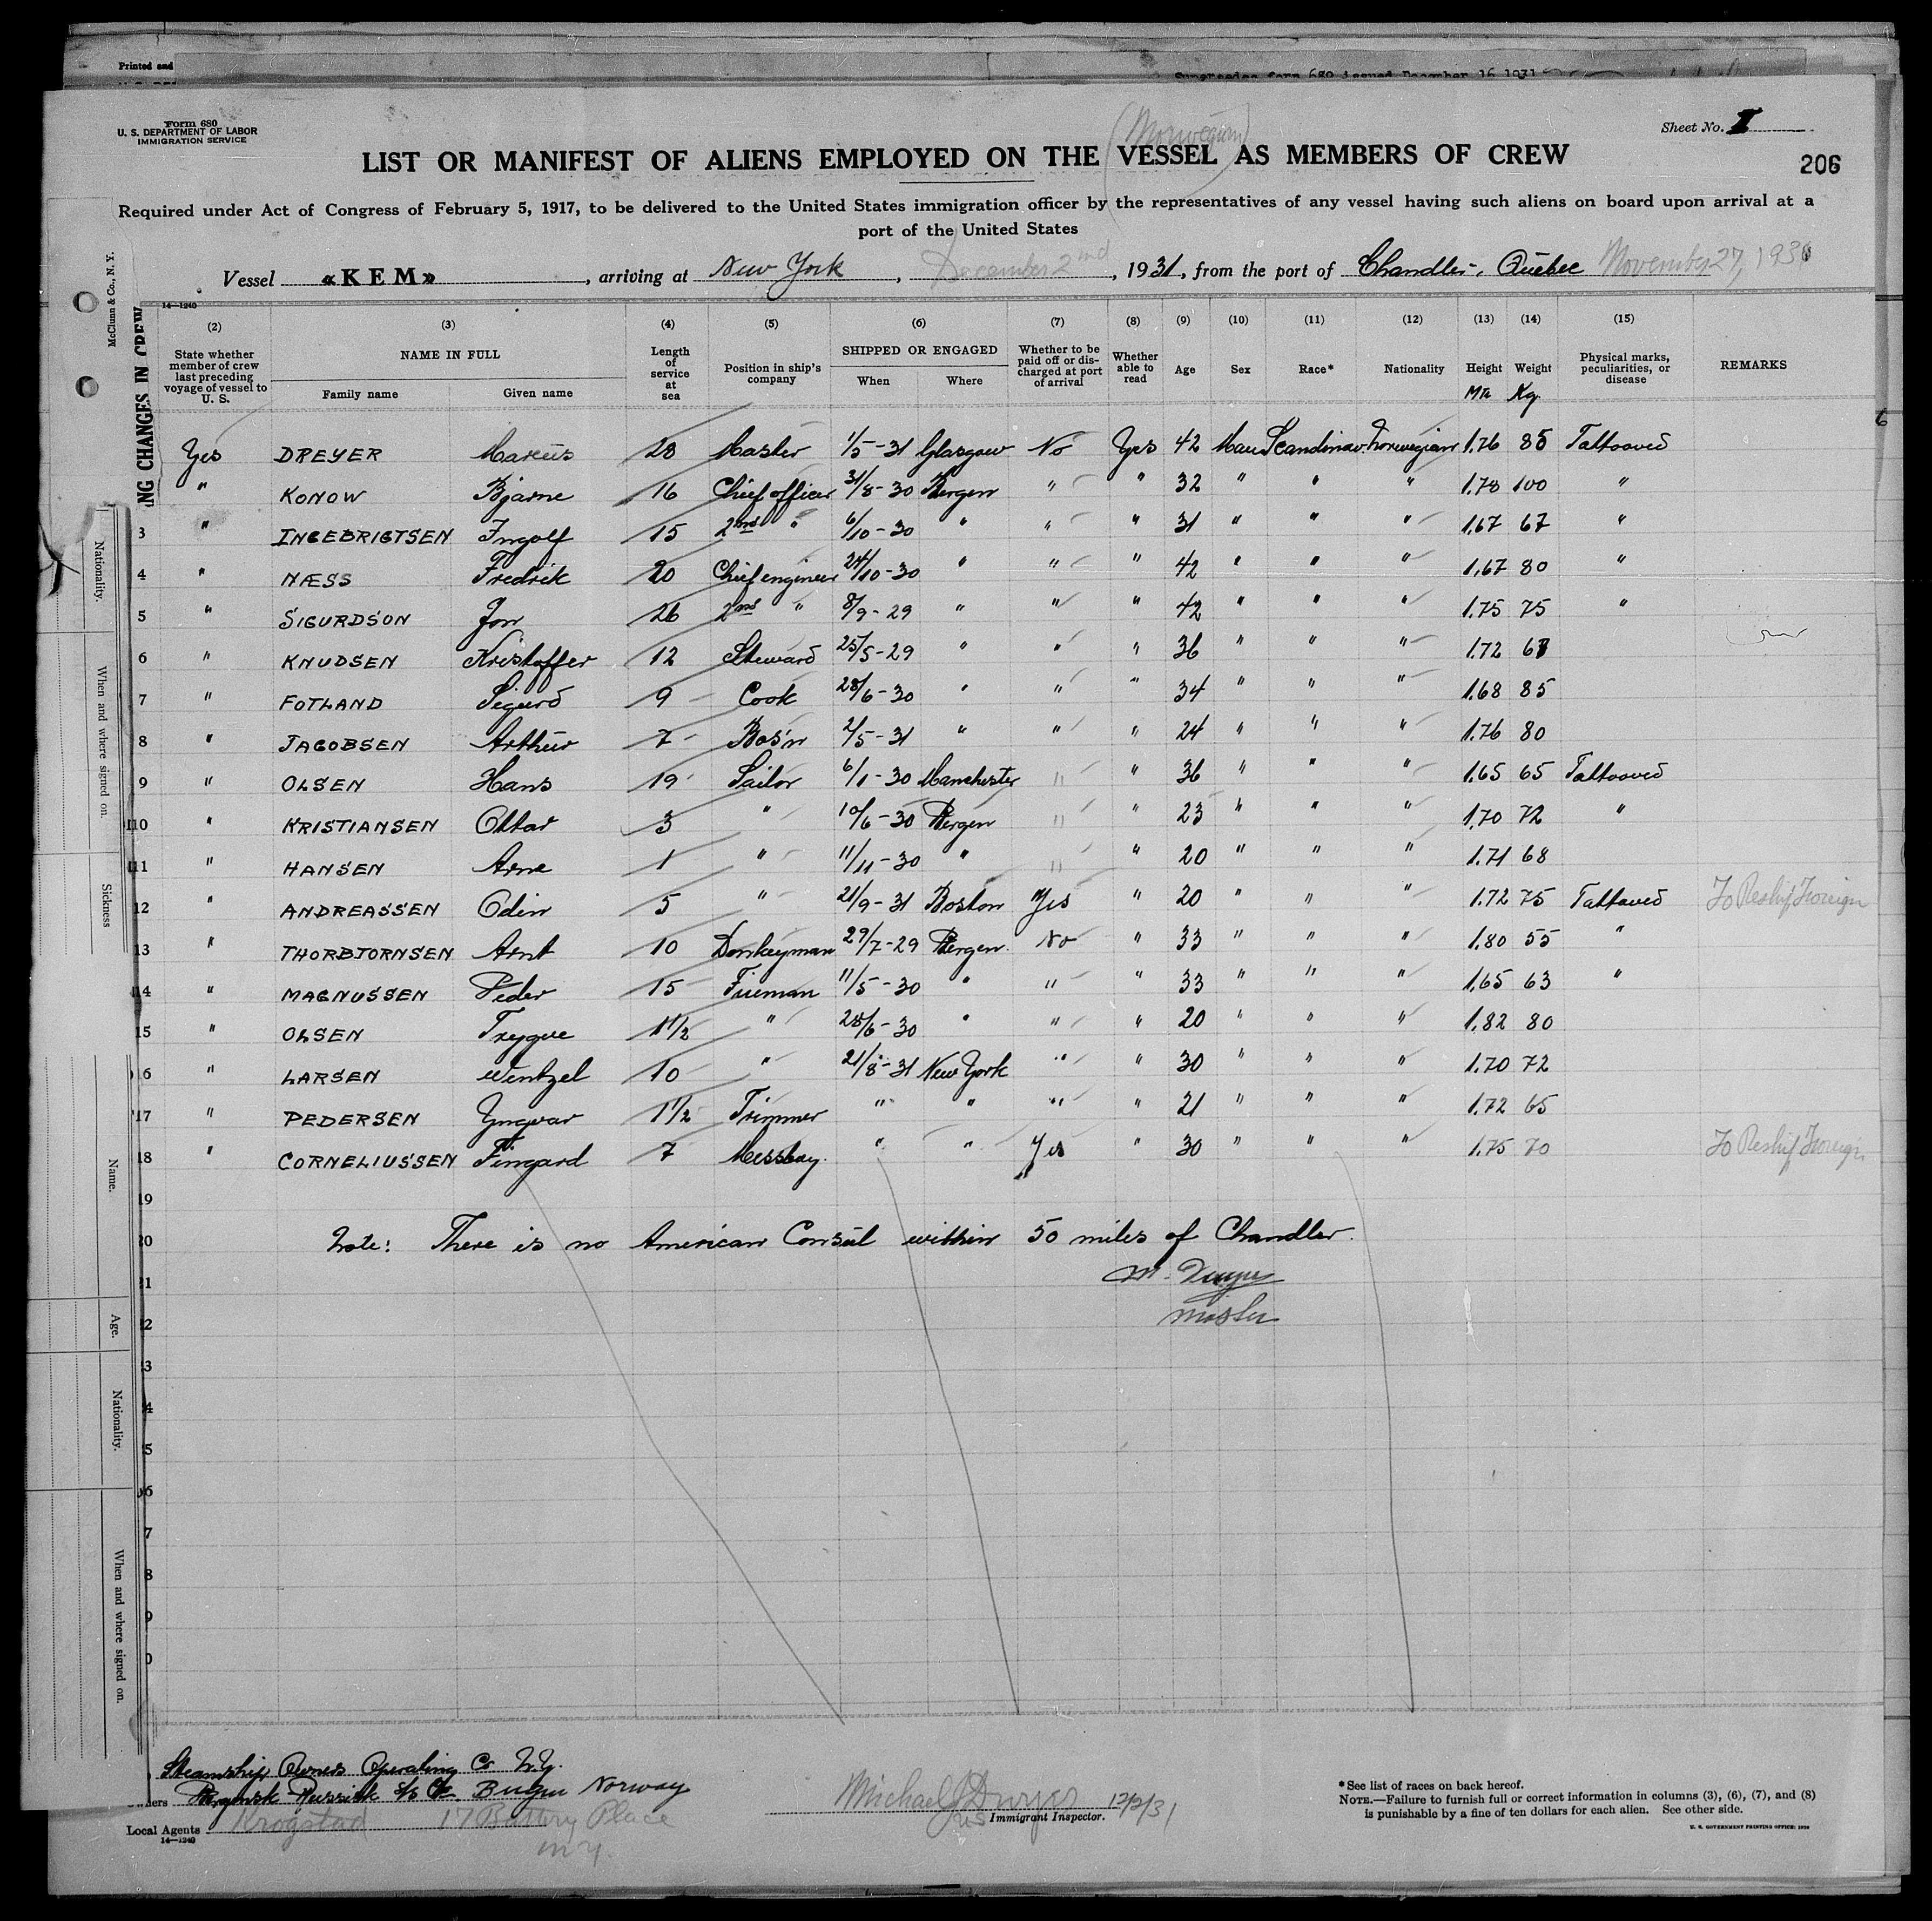 Printed and
Supersedes form 680 issued December 16 1931
Form 680
U. S. DEPARTMENT OF LABOR
IMMIGRATION SERVICE
(Norwegian)
Sheet No. I
LIST OR MANIFEST OF ALIENS EMPLOYED ON THE VESSEL AS MEMBERS OF CREW
206
Required under Act of Congress of February 5, 1917, to be delivered to the United States immigration officer by the representatives of any vessel having such aliens on board upon arrival at a
port of the United States
Vessel «KEM», arriving at New York, December 2nd, 1931, from the port of Chandler, Quebec November 27, 193
14—1240
(2) (3) (4) (5) (6) (7) (8) (9) (10) (11) (12) (13) (14) (15)
State whether member of crew last preceding voyage of vessel to U. S. NAME IN FULL Family name Given name Length of service at sea Position in ship's company SHIPPED OR ENGAGED When Where Whether to be paid off or discharged at port of arrival Whether able to read Age Sex Race* Nationality Height Mtr Weight Kg. Physical marks, peculiarities, or disease REMARKS
Yes DREYER Marcus 28 Master 1/5-31 Glasgow No Yes 42 Man Scandinav. Norwegian 1.76 85 Tattooved
" KONOW Bjarne 16 Chief officer 31/8-30 Bergen " " 32 " " " 1.78 100 "
3 " INGEBRIGTSEN Ingolf 15 2nd " 6/10-30 " " " 31 " " " 1.67 67 "
4 " NÆSS Fredrik 20 Chief engineer 24/10-30 " " " 42 " " " 1.67 80 "
5 " SIGURDSON Jon 26 2nd " 8/9-29 " " " 42 " " " 1.75 75 "
6 " KNUDSEN Kristoffer 12 Steward 25/5-29 " " " 36 " " " 1.72 68
7 " FOTLAND Sigurd 9 Cook 28/6-30 " " " 34 " " " 1.68 85
8 " JACOBSEN Arthur 7 Bos'n 2/5-31 " " " 24 " " " 1.76 80
9 " OLSEN Hans 19 Sailor 6/1-30 Manchester " " 36 " " " 1.65 65 Tattooved
10 " KRISTIANSEN Ottar 3 " 10/6-30 Bergen " " 23 " " " 1.70 72 "
11 " HANSEN Arne 1 " 11/11-30 " " " 20 " " " 1.71 68
12 " ANDREASSEN Odin 5 " 21/9-31 Boston Yes " 20 " " " 1.72 75 Tattooved To Reship Foreign
13 " THORBJORNSEN Arnt 10 Donkeyman 29/7-29 Bergen No " 33 " " " 1.80 55 "
14 " MAGNUSSEN Peder 15 Fireman 11/5-30 " " " 33 " " " 1.65 63 "
15 " OLSEN Trygve 1 1/2 " 28/6-30 " " " 20 " " " 1.82 80
16 " LARSEN Wentzel 10 " 21/8-31 New York " " 30 " " " 1.70 72
17 " PEDERSEN Yngvar 1 1/2 Trimmer " " " " 21 " " " 1.72 65
18 " CORNELIUSSEN Fingard 7 Messboy " " Yes " 30 " " " 1.75 70 To Reship Foreign
19
20 Note: There is no American Consul within 50 miles of Chandler.
21 M. Dreyer
Master
Steamship Owners Operating Co N.Y.
Owners Bergen Norway
Local Agents Krogstad 17 Battery Place
N.Y.
14—1240
Michael J Dwyer 12/2/31
Immigrant Inspector.
*See list of races on back hereof.
NOTE.—Failure to furnish full or correct information in columns (3), (6), (7), and (8)
is punishable by a fine of ten dollars for each alien. See other side.
U. S. GOVERNMENT PRINTING OFFICE: 1930
McClunn & Co., N. Y.
NG CHANGES IN CREW
Nationality.
When and where signed on.
Sickness
Name.
Age.
Nationality.
When and where signed on.